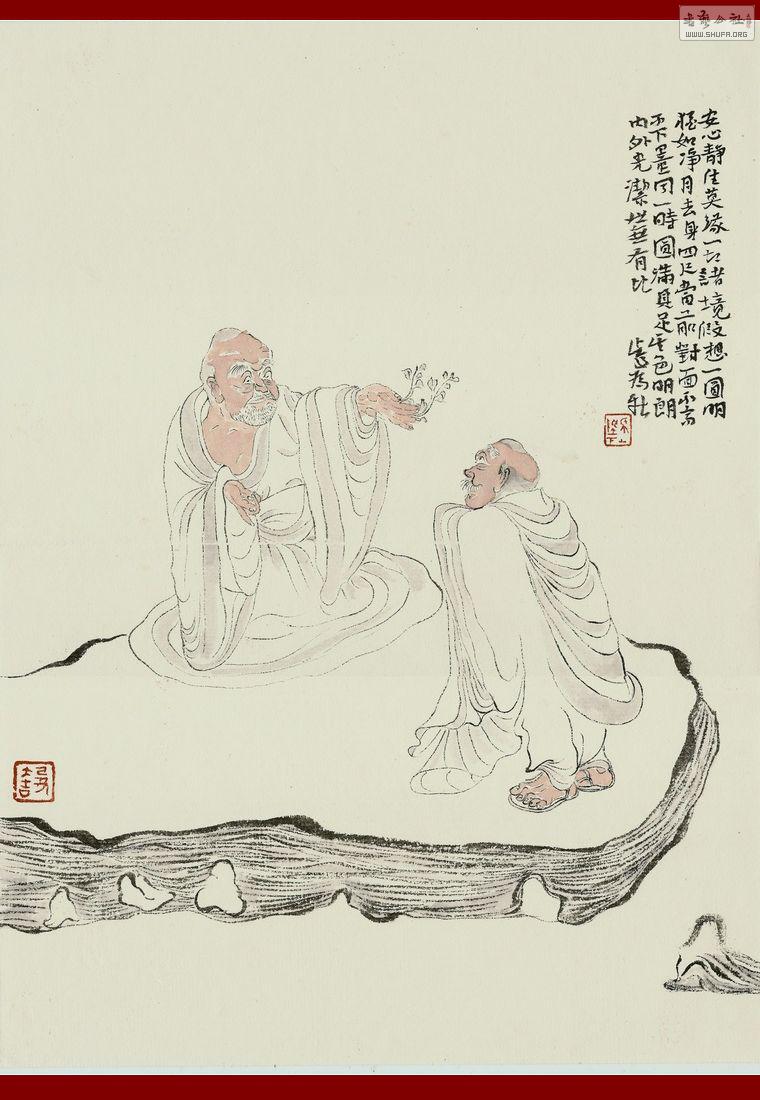 安心靜住莫緣一切諸境假想一圓明
猶如淨月去身四尺當前對面不高
不下量同一時圓滿具足其色明朗
內外光潔世無有比
書藝公社
WWW.SHUFA.ORG